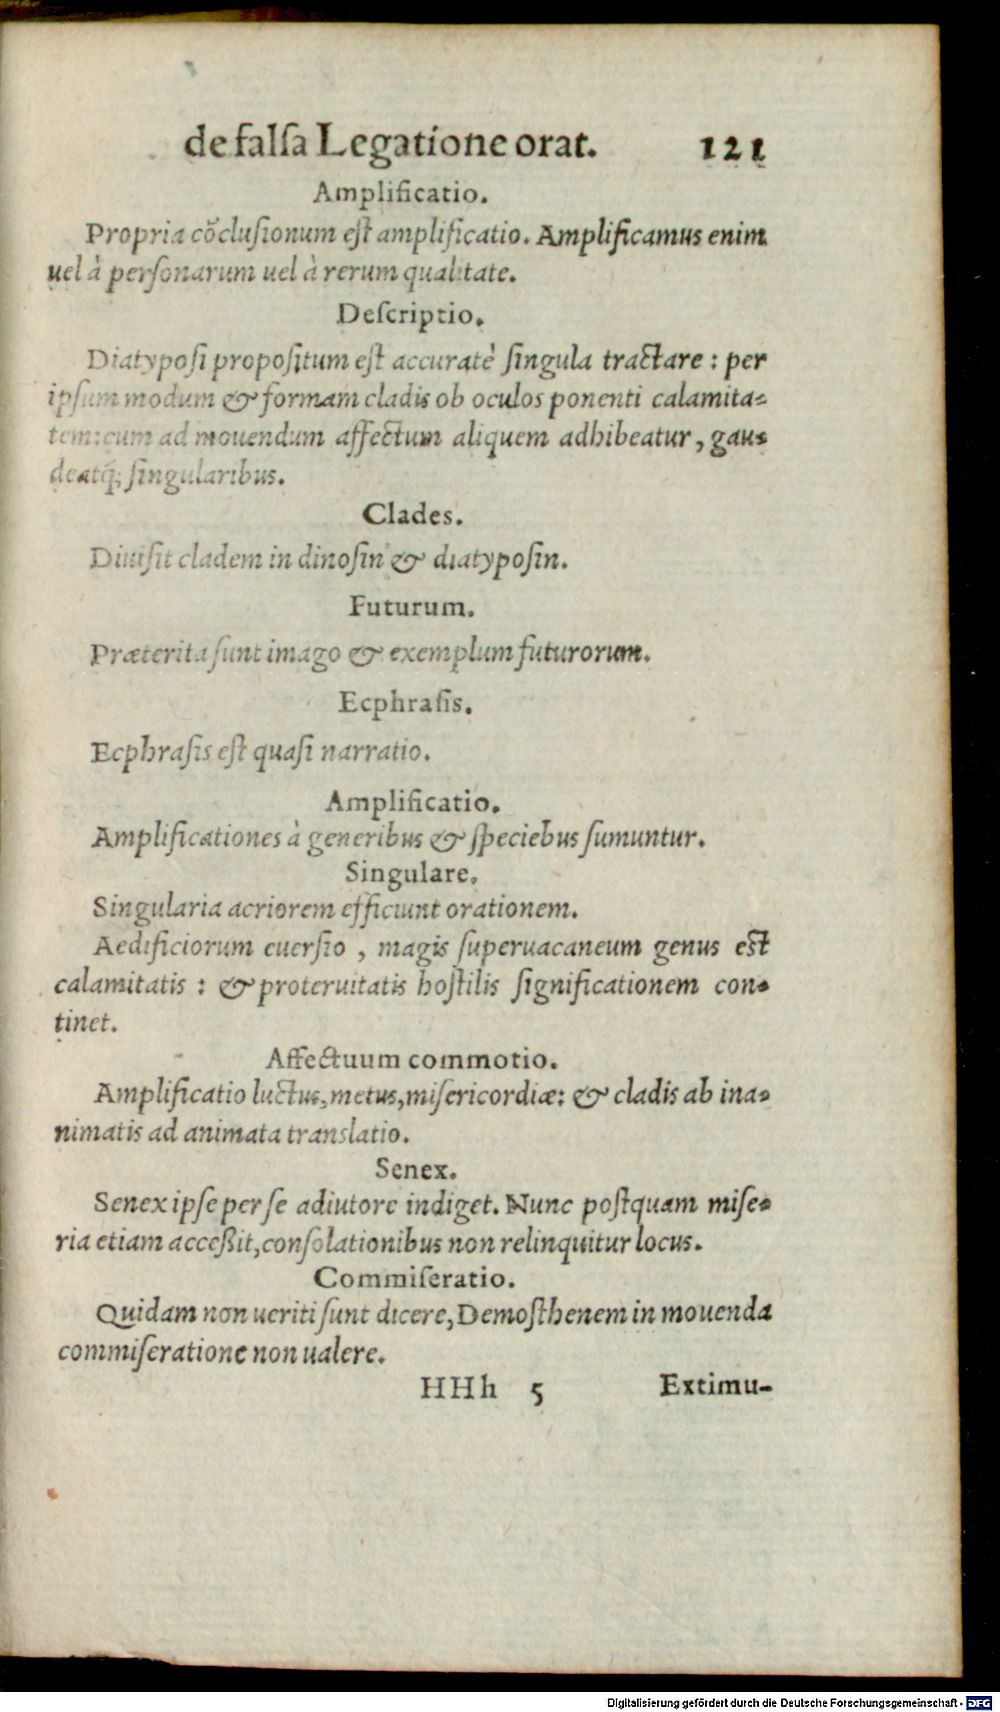 de falſa Legatione orat. 121
Amplificatio.
Propria cõcluſionum eſt amplificatio. Amplificamus enim
uel à perſonarum uel à rerum qualitate.
Deſcriptio.
Diatypoſi propoſitum eſt accuratè ſingula tractare : per
ipſum modum & formam cladis ob oculos ponenti calamita-
tem: cum ad mouendum affectum aliquem adhibeatur, gau-
deatq; ſingularibus.
Clades.
Diuiſit cladem in dinoſin & diatypoſin.
Futurum.
Præterita ſunt imago & exemplum futurorum.
Ecphraſis.
Ecphraſis eſt quaſi narratio.
Amplificatio.
Amplificationes à generibus & ſpeciebus ſumuntur.
Singulare.
Singularia acriorem efficiunt orationem.
Aedificiorum euerſio , magis ſuperuacaneum genus eſt
calamitatis : & proteruitatis hoſtilis ſignificationem con-
tinet.
Affectuum commotio.
Amplificatio luctus, metus, miſericordiæ: & cladis ab ina-
nimatis ad animata translatio.
Senex.
Senex ipſe per ſe adiutore indiget. Nunc poſtquam miſe-
ria etiam acceßit, conſolationibus non relinquitur locus.
Commiſeratio.
Quidam non ueriti ſunt dicere, Demoſthenem in mouenda
commiſeratione non ualere.
HHh 5 Extimu-
Digitalisierung gefördert durch die Deutsche Forschungsgemeinschaft - DFG